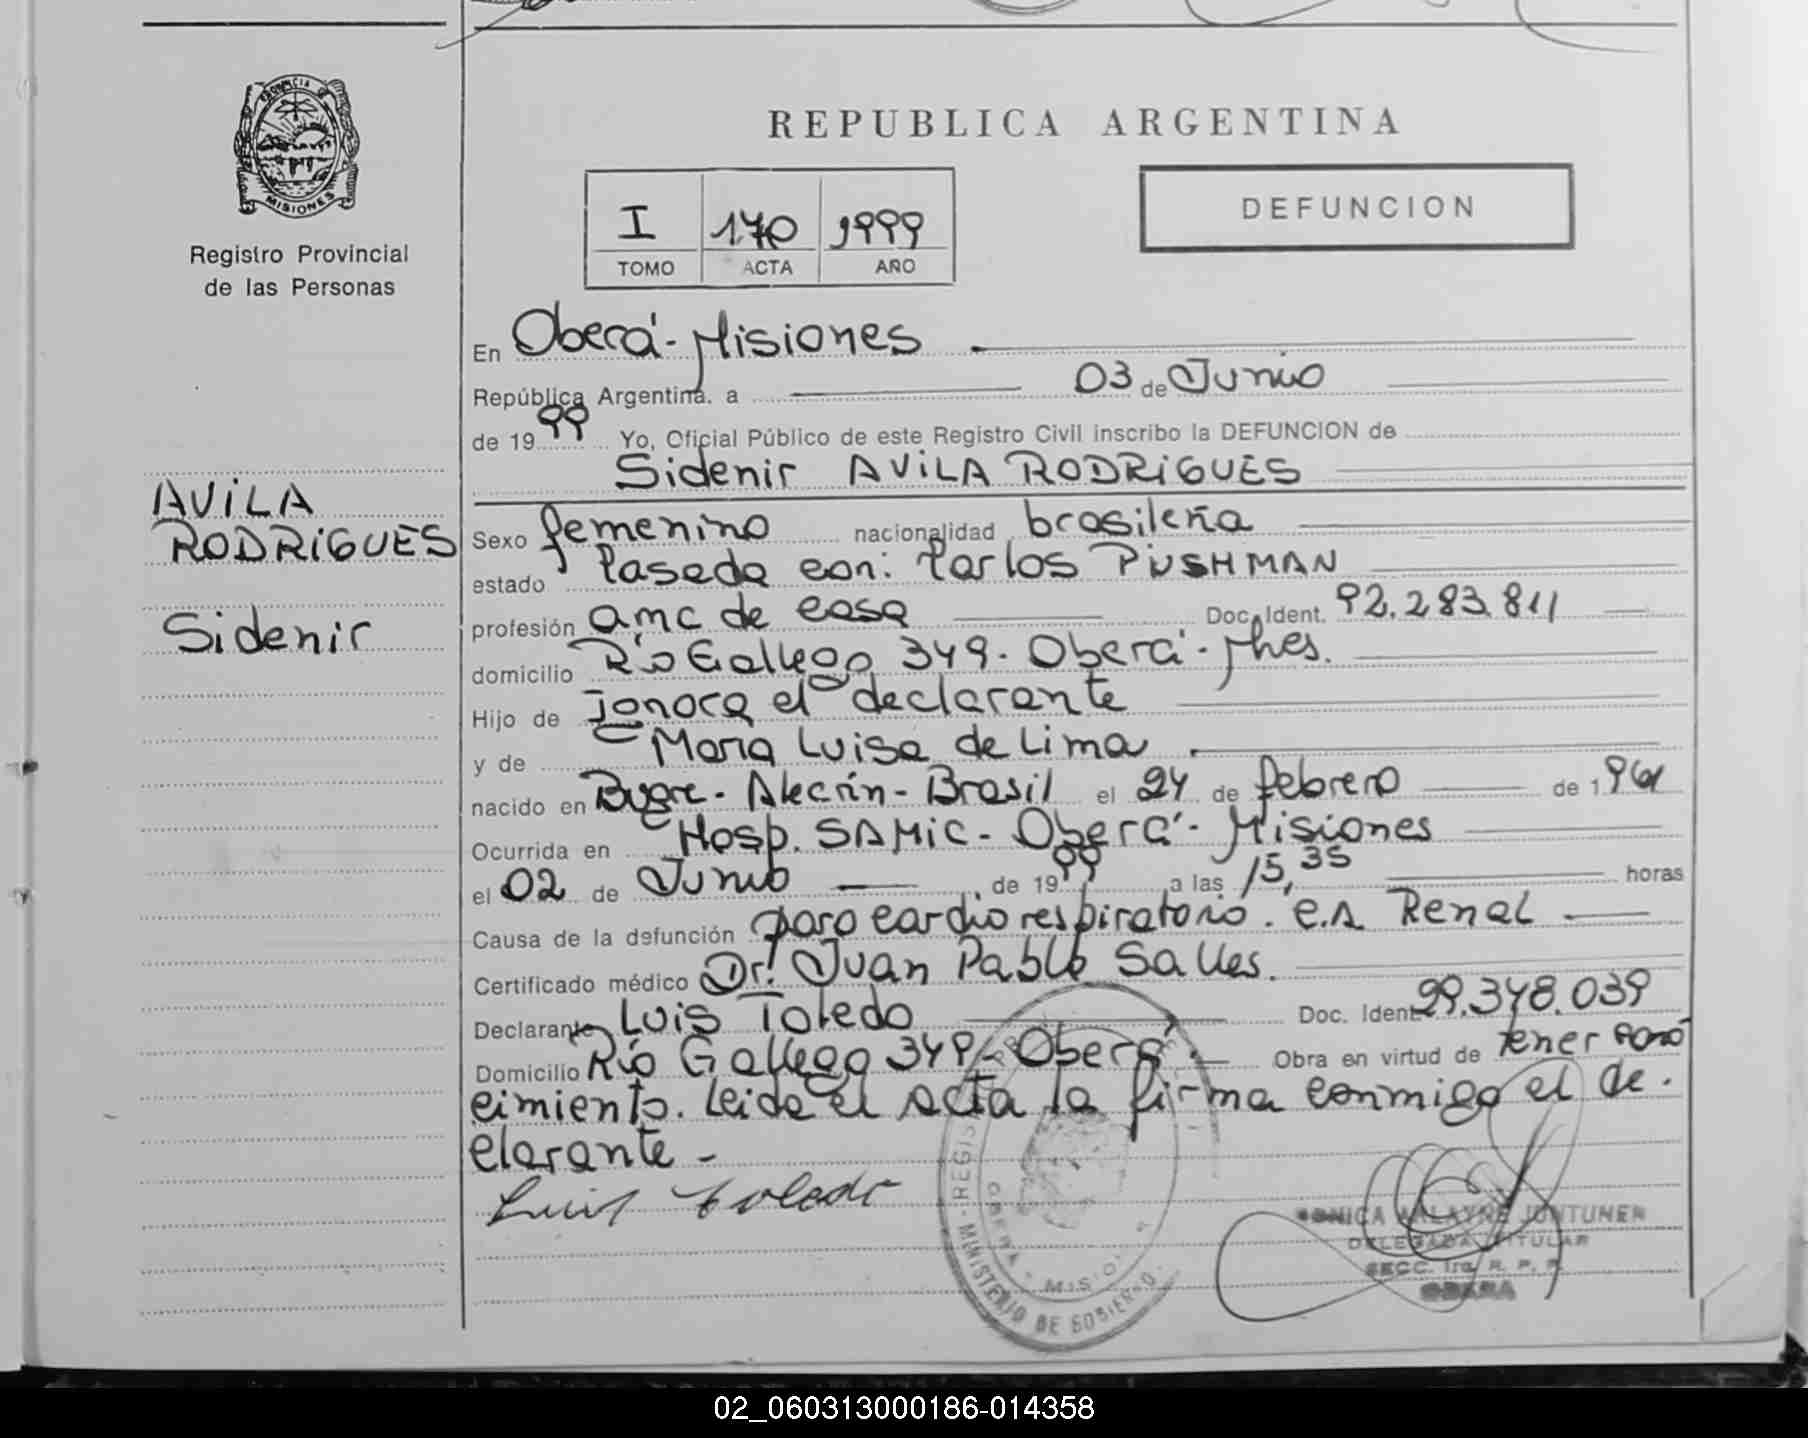 PROVINCIA DE
MISIONES
Registro Provincial
de las Personas
AVILA
RODRIGUES
Sidenir
REPUBLICA ARGENTINA
I 170 1999
TOMO ACTA AÑO
DEFUNCION
En Oberá-Misiones
República Argentina. a 03 de Junio
de 1999 Yo, Oficial Público de este Registro Civil inscribo la DEFUNCION de
Sidenir AVILA RODRIGUES
Sexo femenino nacionalidad brasileña
estado Casada con: Carlos PUSHMAN
profesión ama de casa Doc. Ident. 92.283.811
domicilio Río Gallego 349. Oberá-Mnes.
Hijo de ignora el declarante
y de María Luisa de Lima
nacido en Bugre-Alecrín-Brasil el 24 de febrero de 1961
Ocurrida en Hosp. SAMIC-Oberá-Misiones
el 02 de Junio de 1999 a las 15,35 horas
Causa de la defunción paro cardiorespiratorio. C.A Renal
Certificado médico Dr. Juan Pablo Salles.
Declarante Luis Toledo Doc. Ident. 29.348.039
Domicilio Río Gallego 349-Oberá. Obra en virtud de tener cono
cimiento. Leida el acta la firma conmigo el de.
clarante-
Luis Toledo
MINISTERIO DE GOBIERNO
MONICA JUNTUNEN
DELEGADA TITULAR
SECC. 1ra. R. P. P.
OBERA
02_060313000186-014358